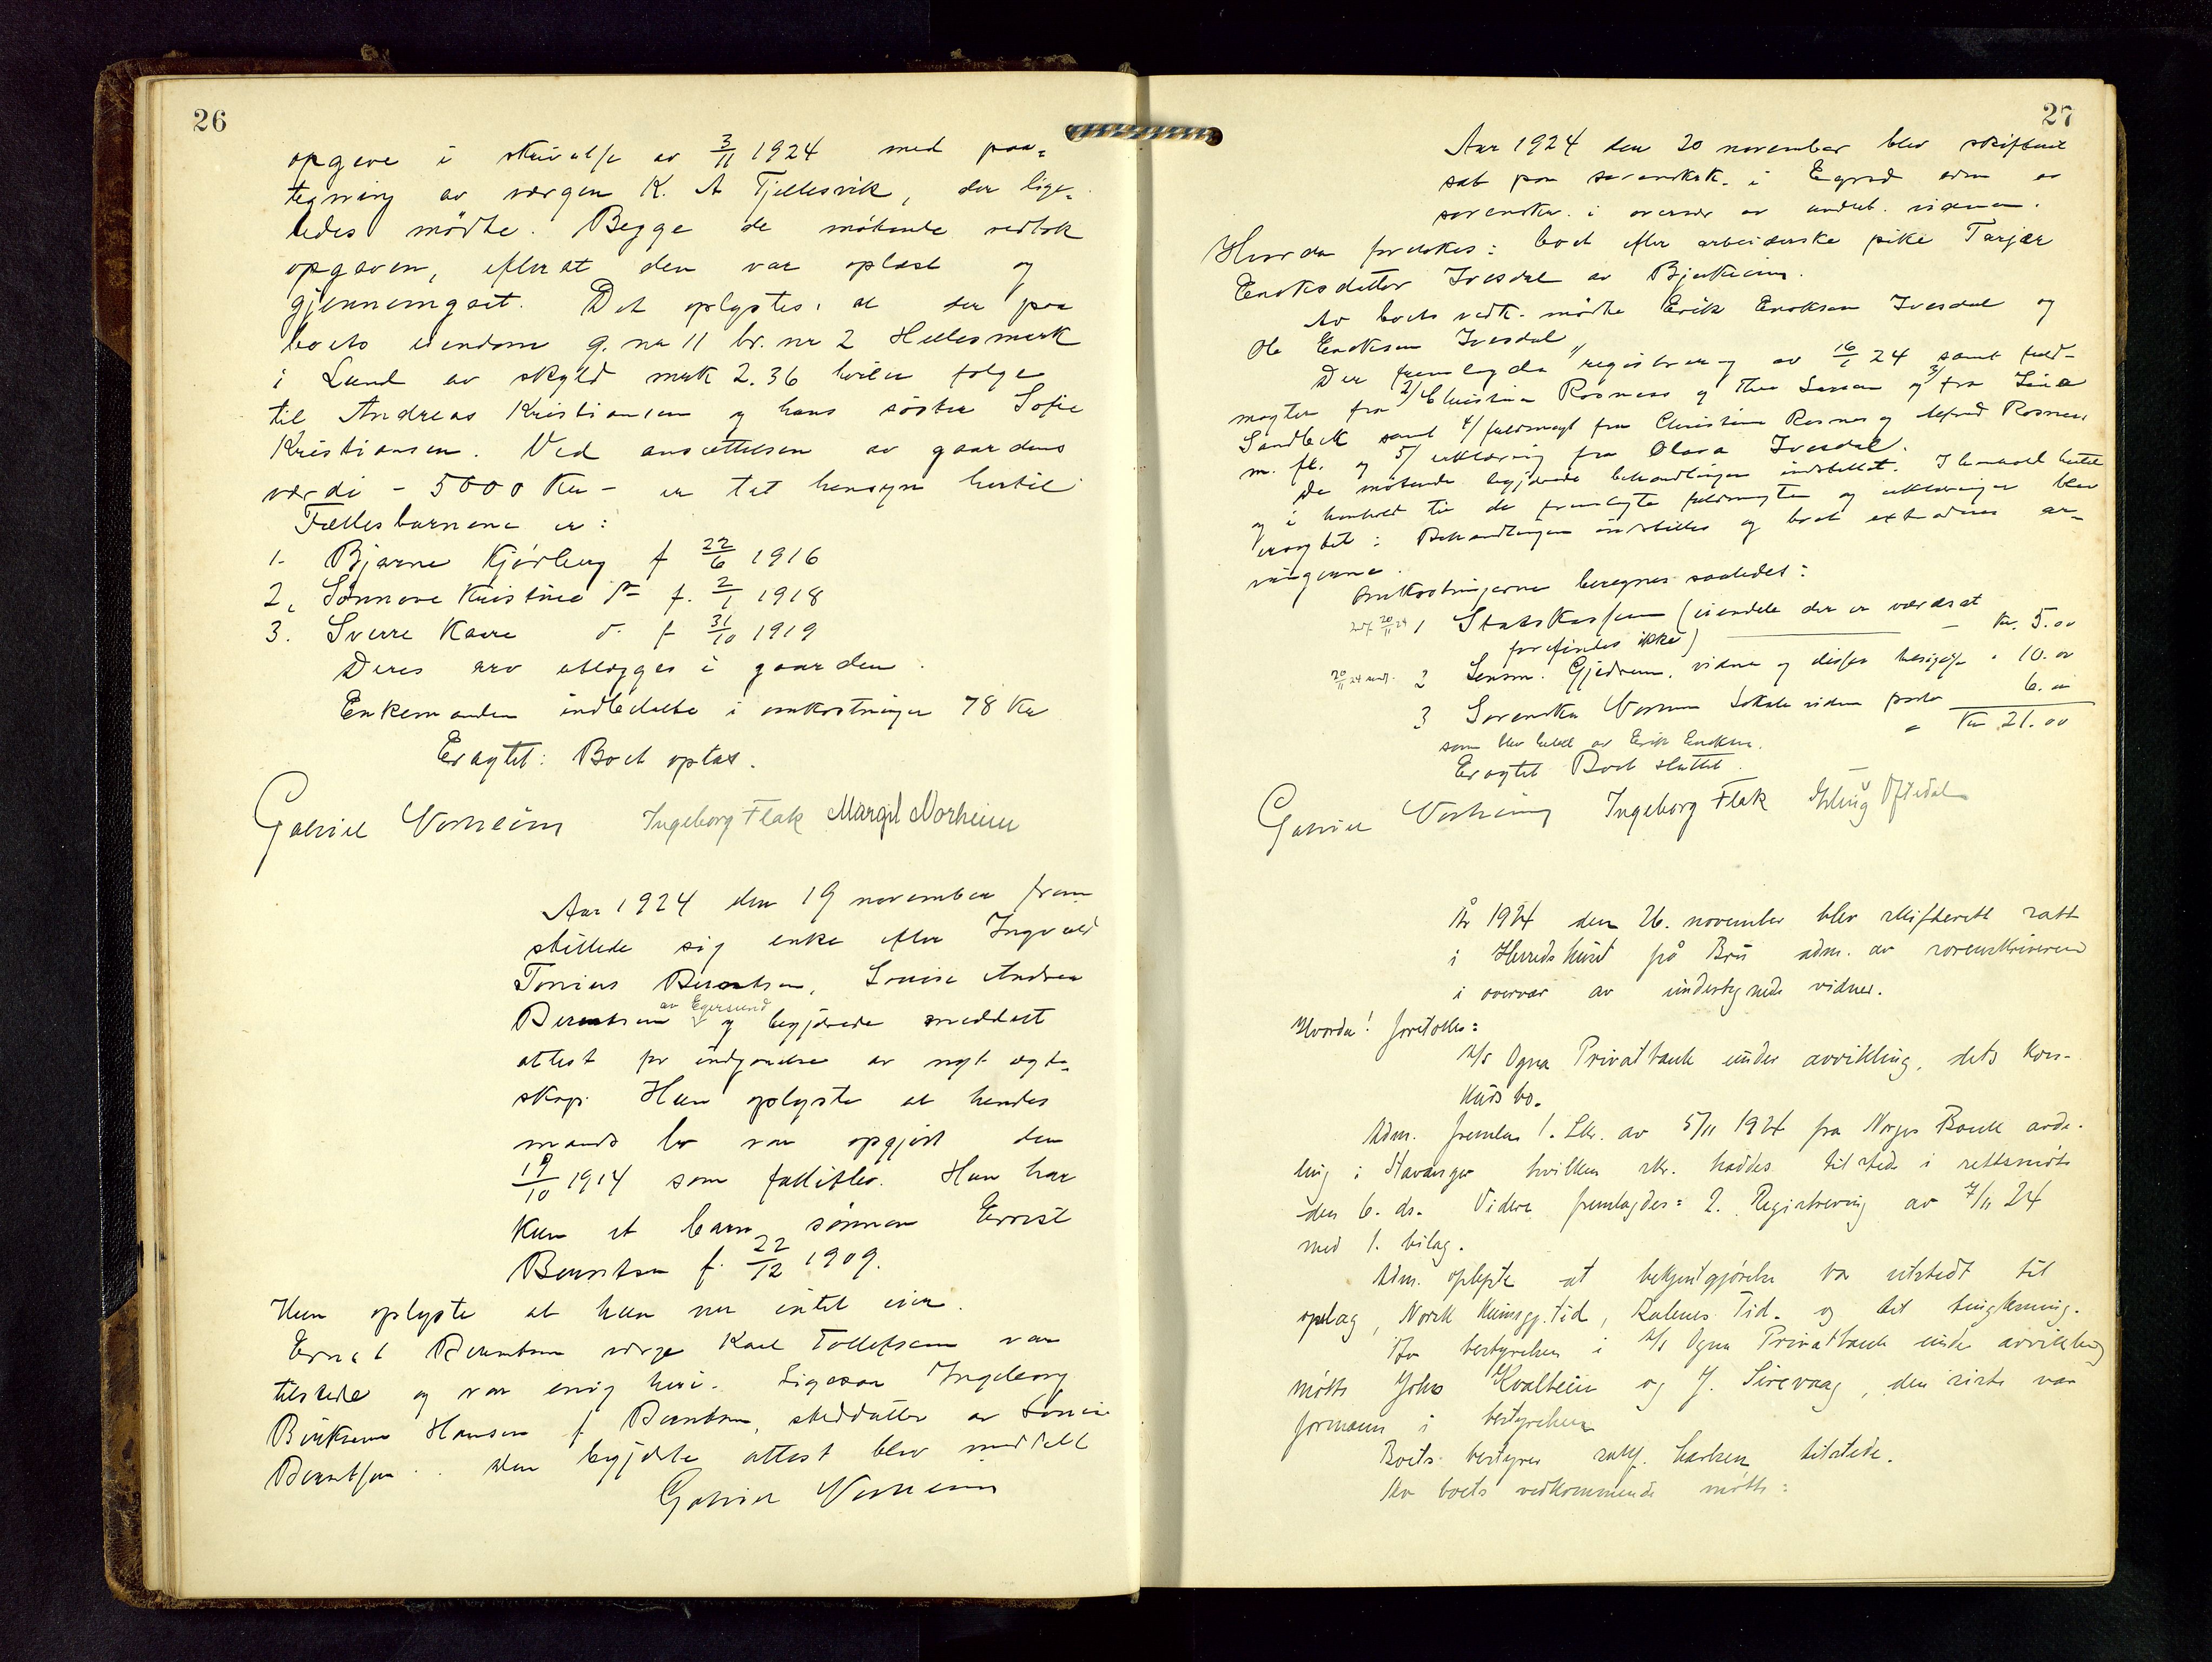 26
opgave i skrivelse av 3/11 1924 med paa-
tegning av vergen K. A Tjellesvik, der lige-
ledes mødte. Begge de møtende vedtok
opgaven, efterat den var oplæst og
gjennemgaat. Det oplystes at der paa
boets eiendom g. nr 11 br. nr 2 Hellesmark
i Lund av skyld mrk 2.36 hviler følge
til Andreas Kristiansen og hans søster Sofie
Kristiansen. Ved ansættelsen av gaardens
værdi - 5000 Kr - er tat hensyn hertil
Fællesbarnene er:
1. Bjarne Kjørberg f 22/6 1916
2. Sønnove Kristine do f. 2/1 1918
3. Sverre Kaare do f 31/10 1919
Deres arv utlægges i gaarden.
Enkemanden indbetalte i omkostninger 78 Kr
Eragtet: Boet optas.
Gabriel Vorheim Ingeborg Flak Margit Norheim
Aar 1924 den 19 november frem-
stillede sig enke efter Ingvald
Tonius Berntsen, Louise Andrea
Berntsen av Egersund og begjærede meddelt
attest for indgaaelse av nyt egte-
skap. Hun oplyste at hendes
mands bo var opgjort den
19/10 1914 som fallitbo. Hun har
kun et barn, sønnen Ernst
Berntsen f. 22/12 1909.
Hun oplyste at hun nu intet eier.
Ernst Berntsen verge Karl Tollefsen var
tilstede og var enig heri. Ligesaa Ingeborg
Hansen f Berntsen, steddatter av Louise
Berntsen. Den begjærte attest blev meddelt
Gabriel Vorheim
27
Aar 1924 den 20 november blev skifteret
sat paa sorenskr.k. i Egersund adm av
sorenskr. i overvær av undert. vidner.
Hvorda foretokes: boet efter arbeiderske pike Tarjær
Enoksdatter Ivesdal av Bjerkreim.
Av boets vedk. mødte Erik Enoksen Ivesdal og
Ole Enoksen Ivesdal
Der fremlagdes 1/ registrering av 16/1 24 samt fuld-
magter fra 2/ Christine Rosness og Thea Larsen og 3/ fra Lina
Sandbek samt 4/ fuldmagt fra Christine Rosnes og Alfred Rosnes
m. fl. og 5/ erklæring fra Olava Ivesdal.
De møtende begjærede behandlingen indstillet. I henhold hertil
og i henhold til de fremlagte fuldmagter og erklæringer blev
eragtet: Behandlingen indstilles og boet extraderes ar-
vingerne.
Omkostningerne beregnes saaledes:
20/11 24 1 Statskassen (eiendele der er værdsat
forefindes ikke) Kr. 5.00
20/11 24 2 Lensm. Gjedrem, vidner og disses 10.00
3 Sorenskr Vorheim Lokale vidner porto 6.00
Kr 21.00
som blev betalt av Erik Enoksen.
Eragtet Boet sluttet.
Gabriel Vorheim Ingeborg Flak Erling Oftedal
År 1924 den 26. november blev skifterett satt
i Herredshuset på Bru adm. av sorenskriveren
i overvær av undertegnede vidner.
Hvorda! foretokes:
A/S Ogna Privatbank under avvikling, dets kon-
kursbo.
Adm. fremla 1. Skr. av 5/11 1924 fra Norges Bank avde-
ling i Stavanger hvilken skr. haddes tilstede i rettsmøte
den 6. ds. Videre fremlagdes: 2. Registrering av 7/11 24
med 1. bilag.
Adm. oplyste at bekjentgjørelse var utstedt til
opslag, Norsk Kunngj.tid, Dalenes Tid. og til tinglesning.
For bestyrelsen i A/S Ogna Privatbank under avvikling
møtte Johs Kvalbein og J. Sirevaag, den siste var
formann i bestyrelsen
Boets bestyrer sakf. Larsen tilstede.
Av boets vedkommende møtte: